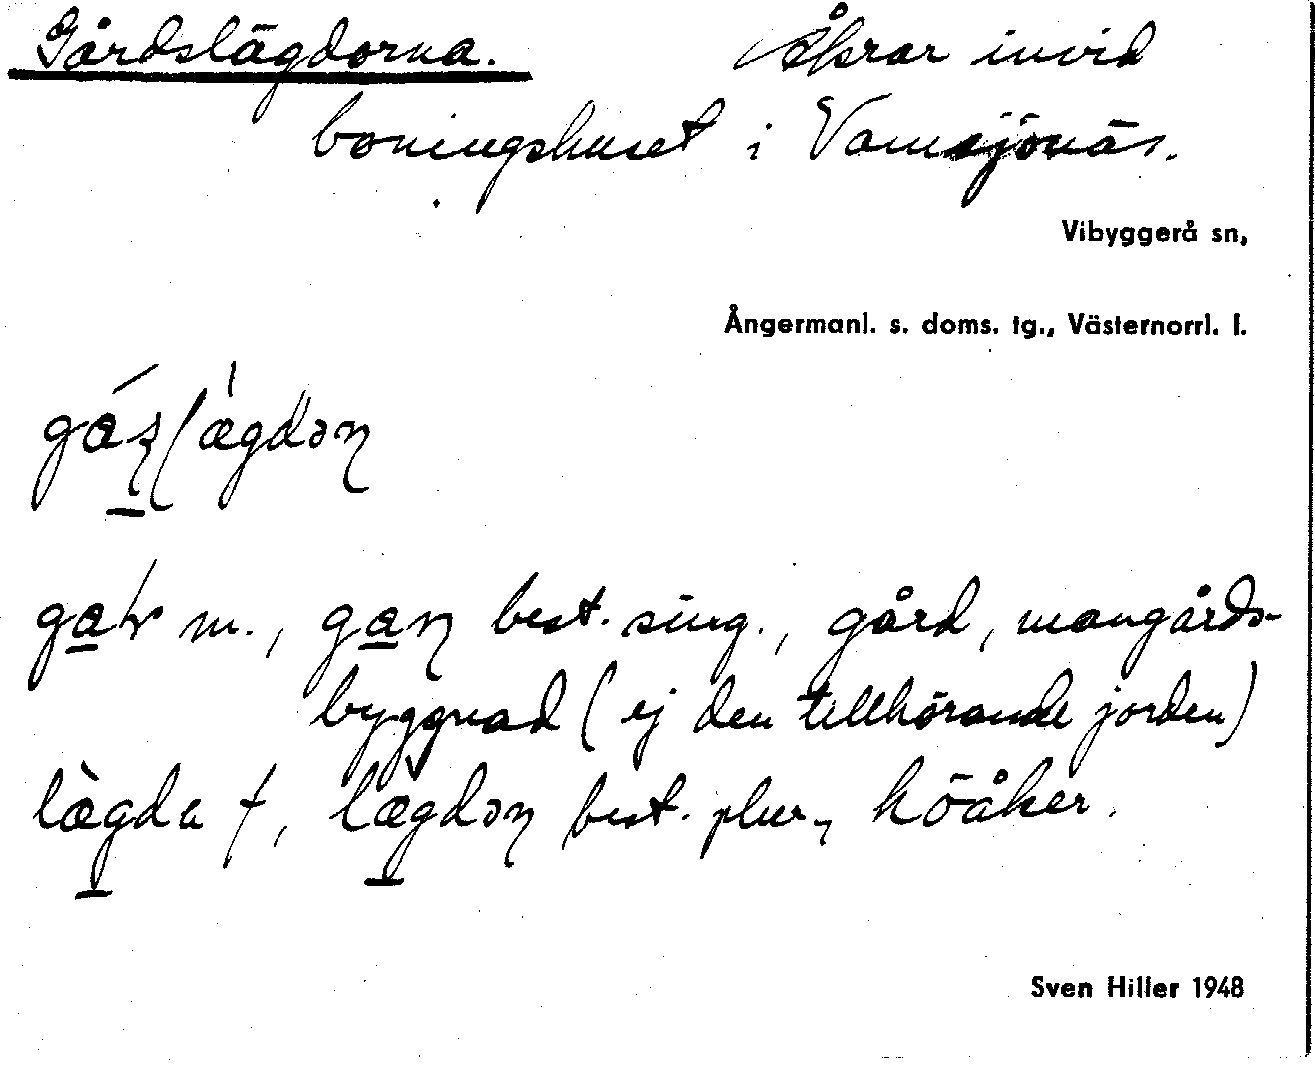 Gårdslägdorna. Åkrar invid
boningshuset i Vamsjönäs.
Vibyggerå sn,
Ångermanl. s. doms. tg., Västernorrl. l.
gard m., best. sing., gård, mangårds-
byggnad (ej den tillhörande jorden)
lægda f, lægdən best. plur., höåker.
Sven Hiller 1948